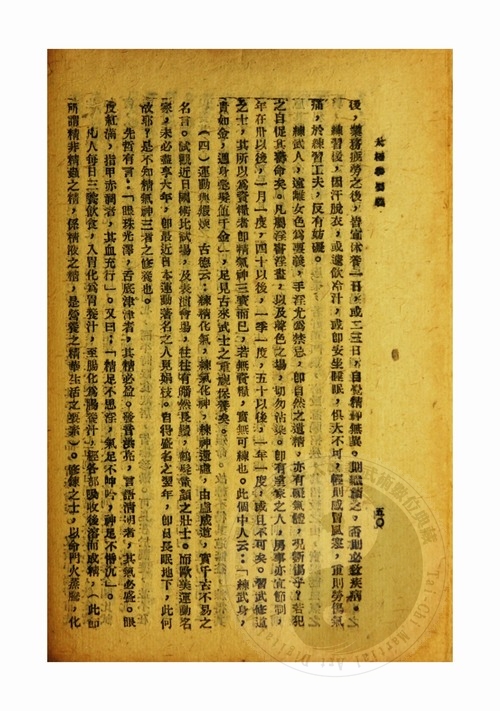 太極拳要義
五〇
後，業務疲勞之後，皆宜休養一日，或二三日，自覺精神無異，則繼續之，否則必致疾病。之
練習後，因汗脫衣，或遽飲冷汁，或卽安坐睡眠，俱大不可，輕則感冒風寒，重則勞傷氣
痛，於練習工夫，反有妨礙。
練武人，遠離女色爲要義，手淫尤爲禁忌，卽自然之遺精，亦有羅氣體，況斲傷乎？若犯
之自促其壽命矣。凡屬淫書淫畫，以及聲色之場，切勿沾染。卽有家室之人，房事亦宜節制，
年在卅以後，一月一度，四十以後，一季一度，五十以後，一年一度，或且不可矣。習武修道
之士，其所以爲寶糧者卽精氣神三寶而已，若無寶糧，實無可練也。此個中人云：「練武身，
貴如金，週身毫髮值千金」，足見古來武士之重視保養矣。
（四）運動與鍛煉　古德云：練精化氣，練氣化神，練神還虛，由虛成道，實千古不易之
名言。試觀近日國術比試場，及表演會場，往往有皤然長鬚，鶴髮童顏之壯士。而歐美運動名
家，未必盡享大年，卽最近日本運動著名之人見娟枝。自得盛名之翌年，卽自長眠地下，此何
故耶？是不知精氣神三者之修養也。
先哲有言：「眼珠光澤，舌底津津者，其精必盈。發音洪亮，言語清朗者，其氣必盛。眼
皮紅滿，指甲赤潤者，其血充行」。又曰：「精足不思淫，氣足不呻吟，神足不惛沉」。
凡人每日三餐飲食，入胃化爲胃養汁，至腸化爲腸養汁，經各部吸收後溶而成精，（此卽
所謂精非精蟲之精，係精液之精，是營養之精華生活之要素）。修練之士，以命門火蒸騰，化